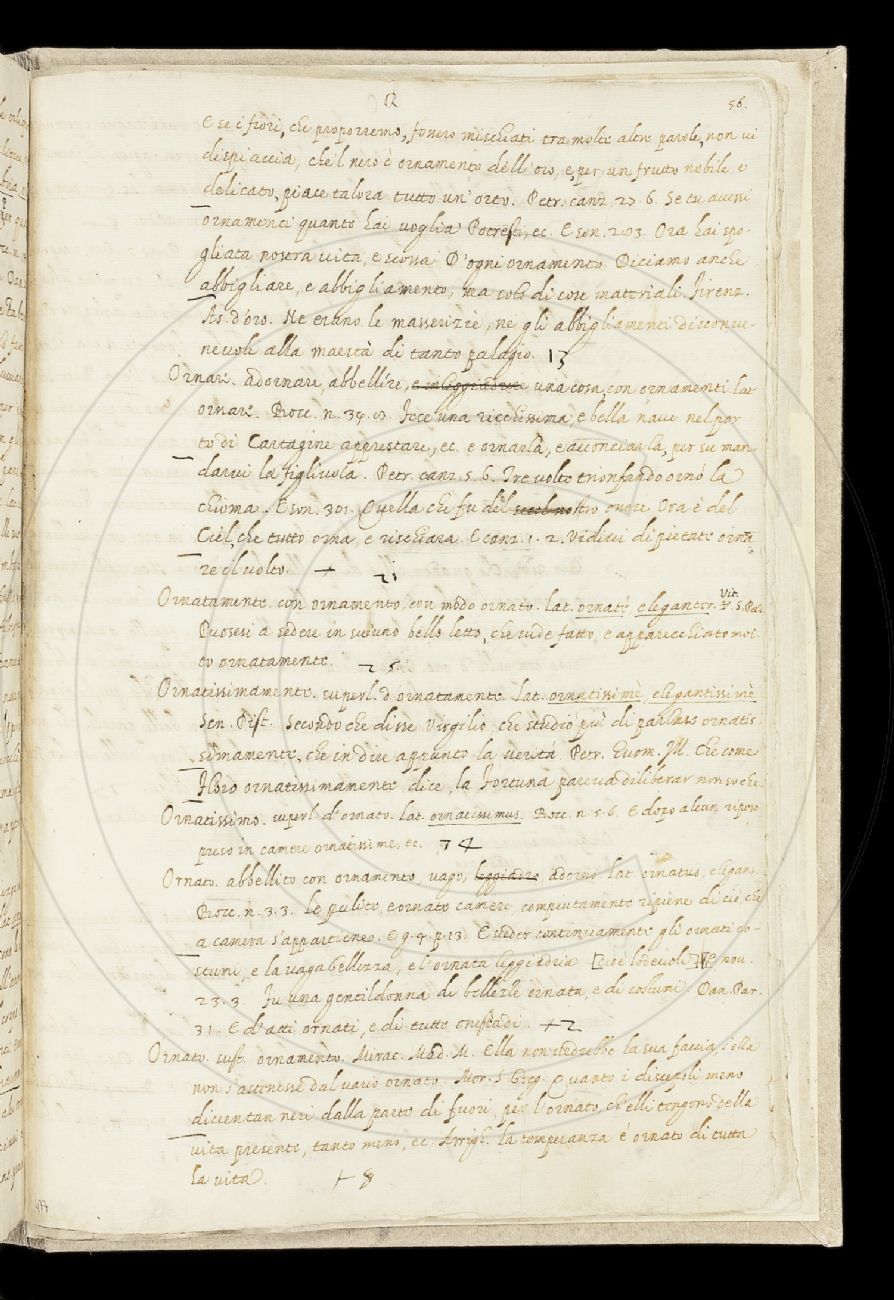 R 56.
E se i fiori, che proporremo, fossero mischiati tra molte altre parole, non vi
dispiaccia, che 'l nero è ornamento dell'oro, e, per un frutto nobile e
delicato, piace talora tutto un'orto. Petr. canz. 29. 6. Se tu avessi
ornamenti quanto hai voglia Potresti, ec. E son. 293. Ora hai spo-
gliata nostra vita, e scossa D'ogni ornamento. Diciamo anche
abbigliare, e abbigliamento, ma solo di cose materiali. Firenz.
As. d'oro. Ne erano le masserizie, ne gli abbigliamenti disconve-
nevoli alla maestà di tanto palagio. 13
Ornare. adornare, abbellire, e inleggiadrire una cosa, con ornamenti. lat.
ornare. Bocc. n. 34. Fece una ricchissima, e bella nave nel por
to di Cartagine apprestare, ec. e ornarla, e acconciarla, per su man
darvi la figlivola. Petr. canz. 5. 6. Tre volte trionfando ornò la
chioma. E son. 301. Quella che fu del nostro onore Ora è del
Ciel, che tutto orna, e rischiara. E canz. 1. 2. Vidivi di pietate orna
re el volto. + 21
Ornatamente. con ornamento, con modo ornato. lat. ornatè, eleganter. Vit. S. Pad.
Puosesi a sedere in su uno bello letto, che vide fatto, e apparecchiato mol
to ornatamente. 25
Ornatissimamente. superl. d'ornatamente. Lat. ornatissimè, elegantissimè
Sen. Pist. Secondo che disse Virgilio, che studiò più di parlare ornatis-
simamente, che in dire appunto la verità. Petr. Huom. Ill. Che come
Floro ornatissimamente dice, la Fortuna pareva diliberar non so che
Ornatissimo. superl. d'ornato. lat. ornatissimus. Bocc. n. 5. 6. E dopo alcun riposo
preso in camere ornatissime, ec. 74
Ornato. abbellito con ornamento, vago, leggiadro, adorno. lat. ornatus, elegans.
Bocc. n. 3. 3. Le pulite, e ornate camere, compiutamente ripiene di ciò, che
a camera s'appartiene. E g. 4. p. 13. E veder continuamente gli ornati co-
stumi, e la vaga bellezza, e l'ornata leggiadria [cioè lodevoli] E nov.
23. 3. Fu una gentildonna di bellezze ornata, e di costumi. Dan. Par.
31. E d'atti ornati, e di tutte onestadi. +2
Ornato. sust. ornamento. Mirac. Mad. M. Ella non vedrebbe la sua faccia, s'ella
non s'astenesse dal vario ornato. Mor. S. Greg. Quanto i discepoli meno
diventan neri dalla parte di fuori, per l'ornato ch'elli tengono della
vita presente, tanto meno, ec. Arrigh. la temperanza è ornato di tutta
la vita. + 8